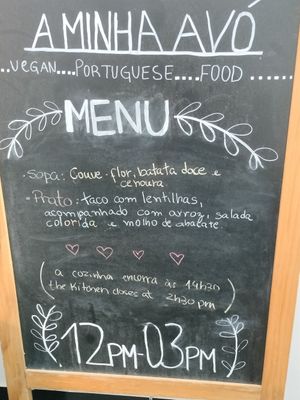 A MINHA AVÓ
..VEGAN....PORTUGUESE....FOOD......
MENU
• Sopa: Couve-flor, batata doce e
cenoura
• Prato: taco com lentilhas,
acompanhado com arroz, salada
colorida e molho de abacate.
(a cozinha encerra às 14h30
the kitchen closes at 2h30pm)
12PM-03PM